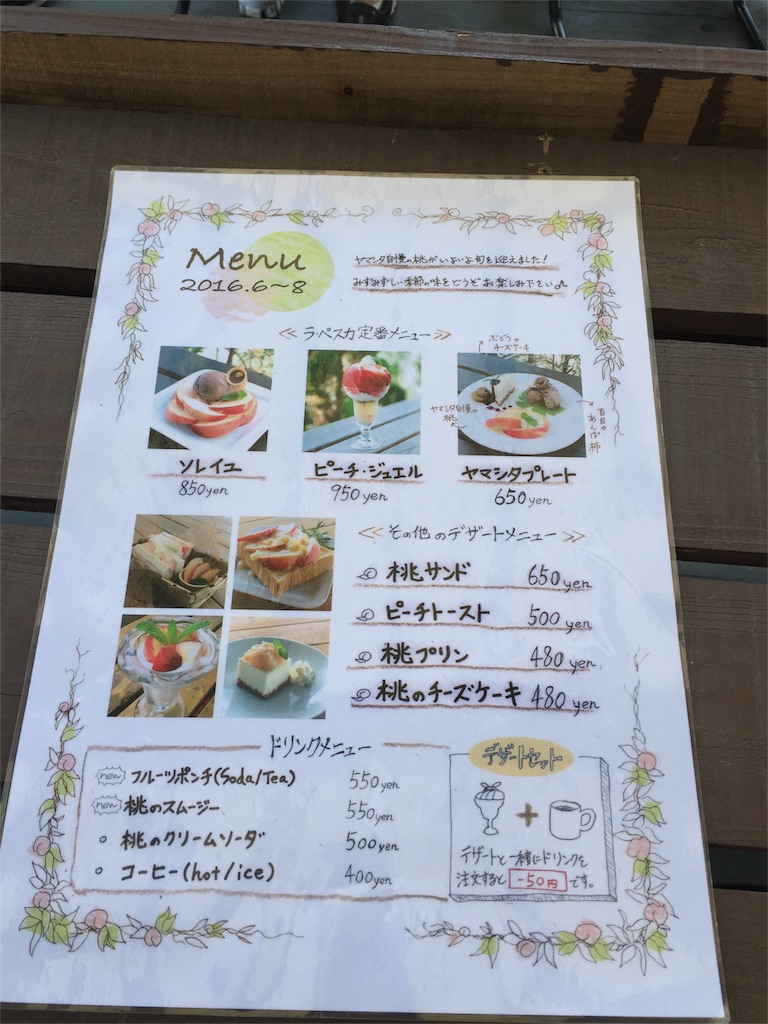 Menu
2016.6〜8
ヤマシタ自慢の桃がいよいよ旬を迎えました！
みずみずしい季節の味をどうぞお楽しみ下さい♪
≪ ラ・ペスカ定番メニュー ≫
ぶどうの
チーズケーキ
ヤマシタ自慢の
桃
百目の
あんぽ柿
ソレイユ
850yen
ピーチ・ジュエル
950yen
ヤマシタプレート
650yen
≪ その他のデザートメニュー ≫
桃サンド 650yen
ピーチトースト 500yen
桃プリン 480yen
桃のチーズケーキ 480yen
ドリンクメニュー
new フルーツポンチ(Soda/Tea) 550yen
new 桃のスムージー 550yen
○ 桃のクリームソーダ 500yen
○ コーヒー(hot/ice) 400yen
デザートセット
+
デザートと一緒にドリンクを
注文すると -50円 です。